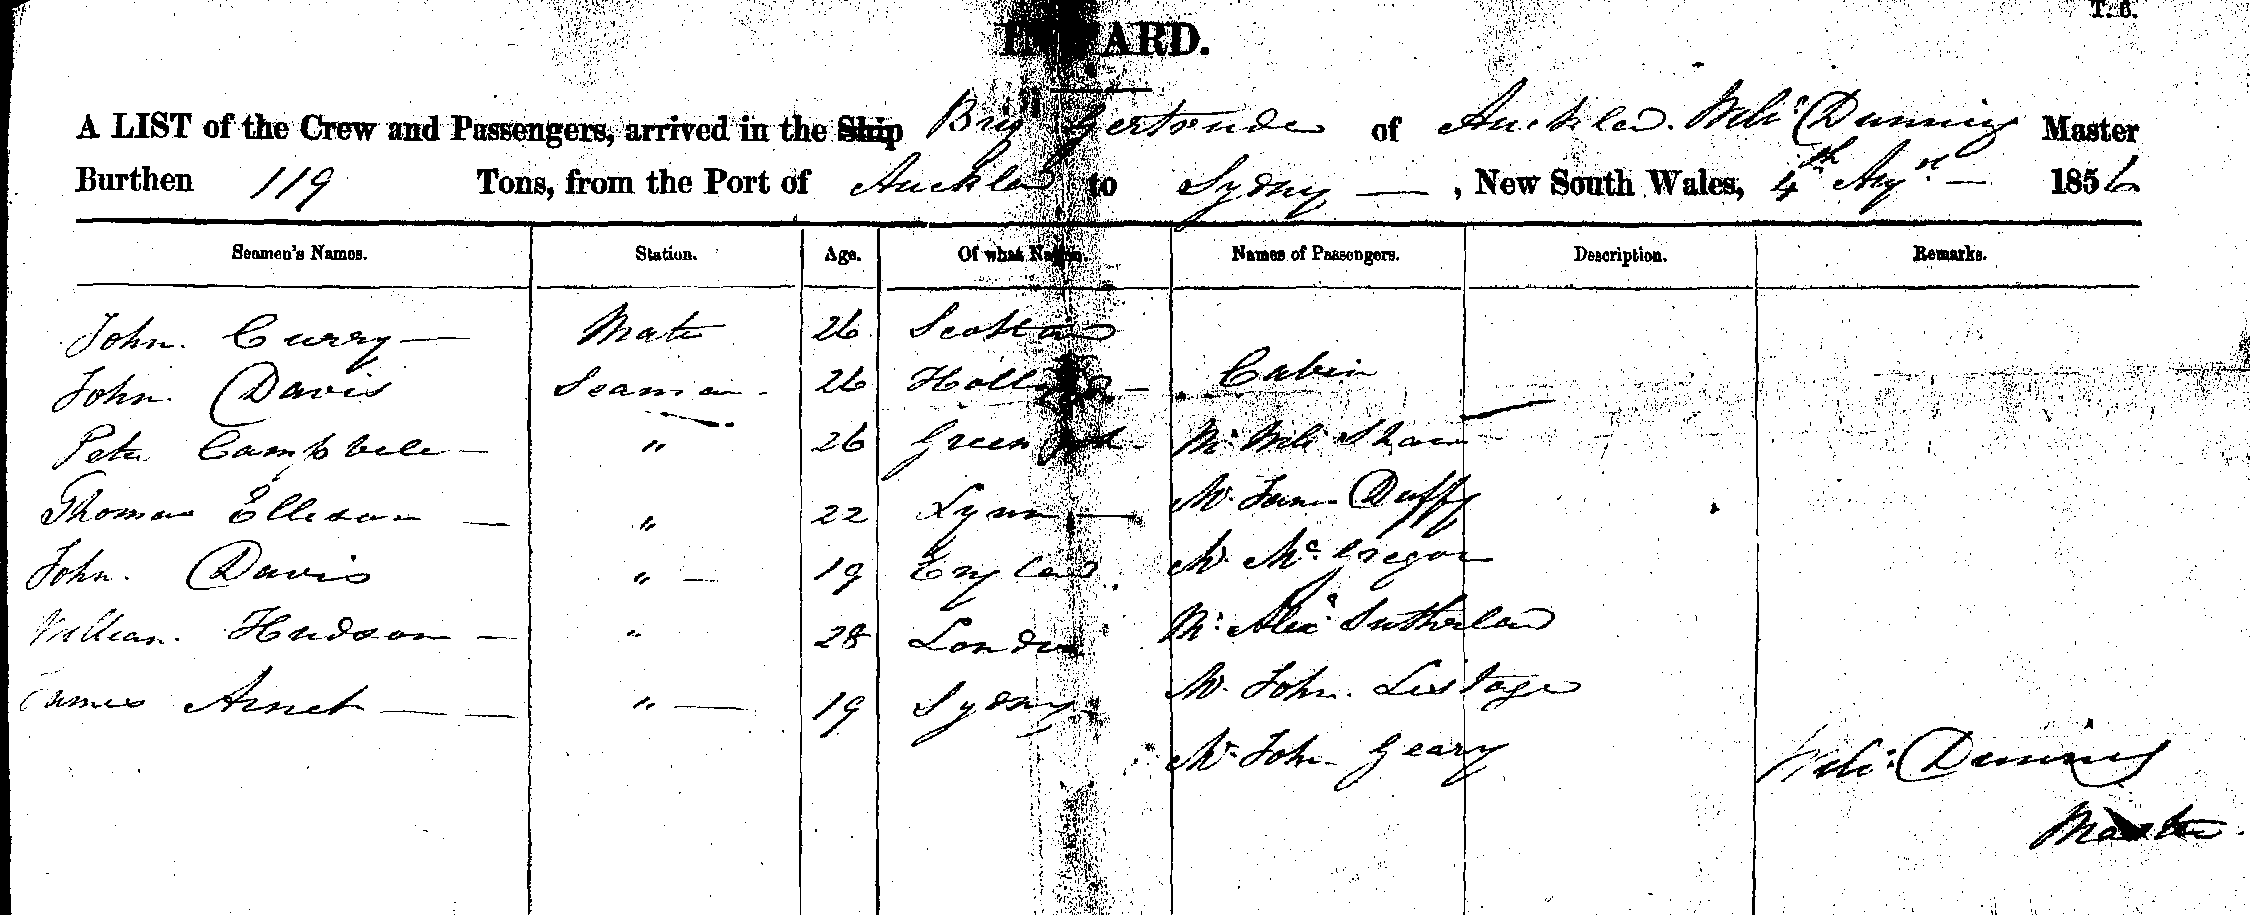 T. 6.
INWARD.
A LIST of the Crew and Passengers, arrived in the Ship Brig Gertrude of Aucklad. Willm Dunning Master
Burthen 119 Tons, from the Port of Aucklad to Sydny — , New South Wales, 4th Augst — 1856
Seamen's Names. Station. Age. Of what Nation. Names of Passengers. Description. Remarks.
John. Curry — Mate 26 Scotlad
Cabin
John. Davis Seaman - 26 Holland —
Peter Campbell — " 26 Greenock Mr Willm Shaw
Thomas Ellison — " 22 Lynn — Mr James Duffy
John. Davis " — 19 Englad Mr McGregor
William. Hudson — " 28 London Mr Alexr Sutherlad
James Arnet — — " — 19 Sydny Mr John.
Mr John Geary
Willm Dunning
Master